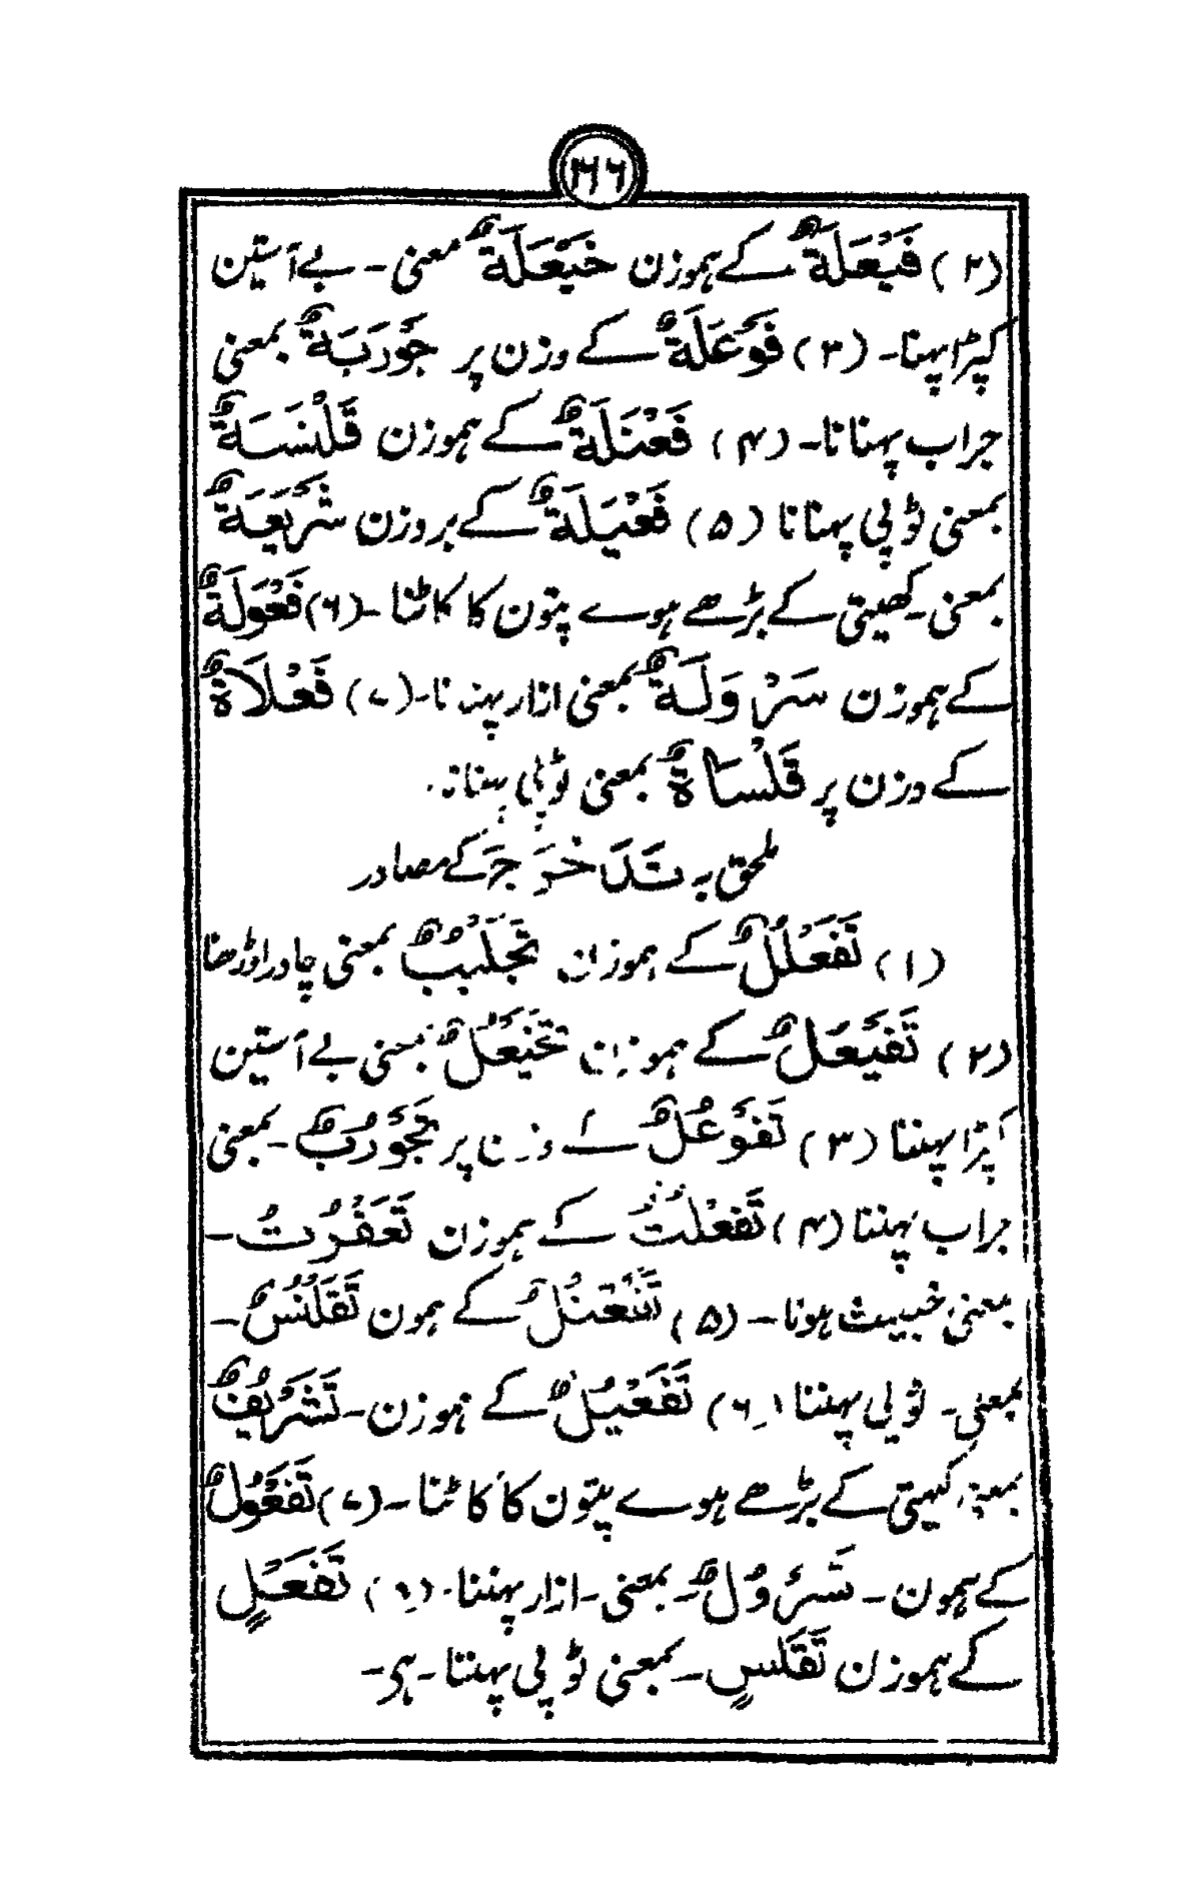 ۲۶۶
(۲) فَیْعَلَةٌ کے ہموزن خَیْعَلَةٌ معنی۔ بے آستین
کپڑا پہنا۔ (۳) فَوْعَلَةٌ کے وزن پر جَوْرَبَةٌ بمعنی
جراب پہنانا۔ (۴) فَعْنَلَةٌ کے ہموزن قَلْنَسَةٌ
بمعنی ٹوپی پہنانا (۵) فَعْیَلَةٌ کے بروزن شَرْیَعَةٌ
بمعنی۔ کھیتی کے بڑھے ہوے پتون کا کاٹنا۔ (۶) فَعْوَلَةٌ
کے ہموزن سَرْوَلَةٌ بمعنی ازار پہنا نا۔ (۷) فَعْلَاةٌ
کے وزن پر قَلْسَاةٌ بمعنی ٹوپی پہنانا۔
ملحق بہ تَدَاخْرَجَ کے مصادر
(۱) تَفَعْلُلٌ کے ہموزان تَجَلْبُبٌ بمعنی چادر اوڑھنا
(۲) تَفَیْعُلٌ کے ہموزان تَخَیْعُلٌ بمعنی بے آستین
کپڑا پہننا (۳) تَفَوْعُلٌ کے وزن پر تَجَوْرُبٌ۔ بمعنی
جراب پہننا (۴) تَفَعْلُتٌ کے ہموزن تَعَفْرُتُ۔
بمعنی خبیث ہونا۔ (۵) تَفَعْنُلٌ کے ہمون تَقَلْنُسٌ۔
بمعنی۔ ٹوپی پہننا (۶) تَفَعْیُلٌ کے ہموزن۔ تَشَرْیُفٌ
بمعنی کہیتی کے بڑھے ہوے پتون کا کاٹنا۔ (۷) تَفَعْوُلٌ
کے ہمون۔ تَسَرْوُلٌ۔ بمعنی۔ ازار پہننا۔ تَفَعْلٍ
کے ہموزن تَقَلْسٍ۔ بمعنی ٹوپی پہننا۔ ہی۔